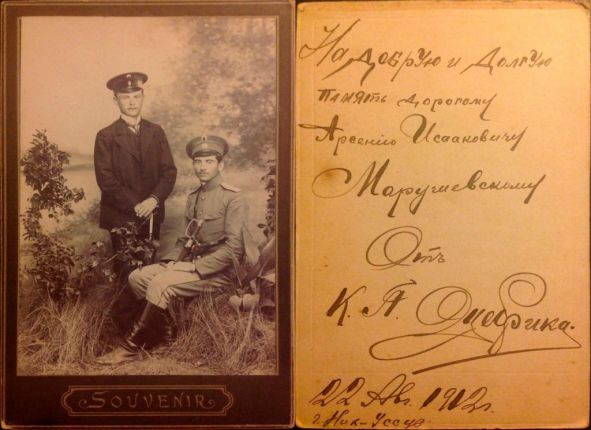 SOUVENIR
На Добрую и Долгую
Память Дорогому
Арсенію Исааковичу
Марушевскому
Отъ
К. А.
22 Авг. 1912г.
г. Ник-Уссур.